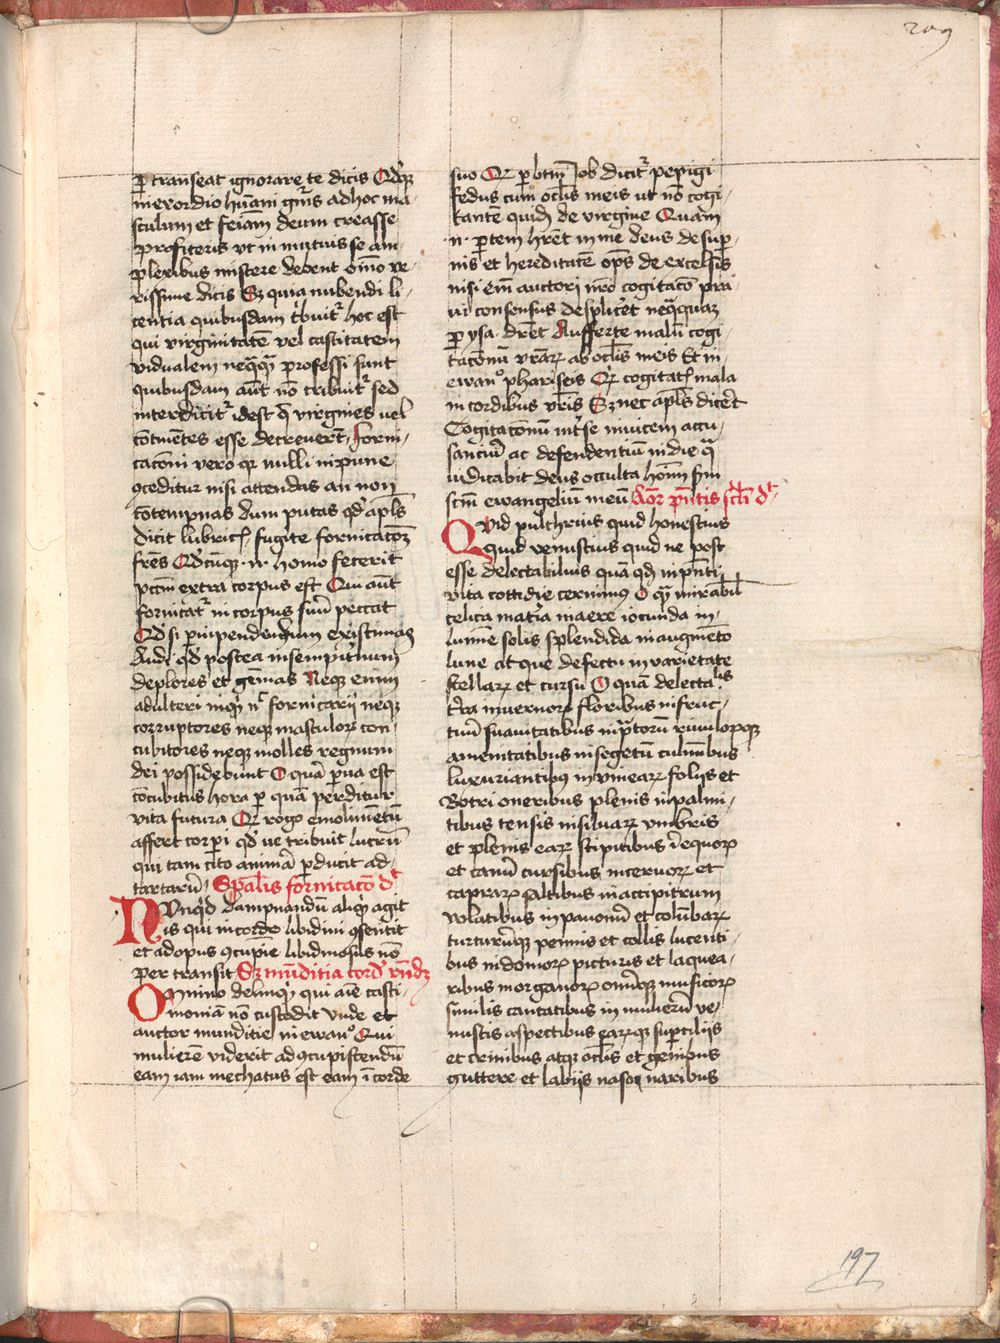 209
p̱ transeat ignorare te dicis Qd'q₃
in exordio hūani gn̄is ad hoc ma-
sculum et feīam deum creasse
profiteris vt in mutuis se am-
plexibus miscere debent om̄o ve-
rissime dicis Sz quia nubendi li-
centia quibusdam t'buit² hoc est
qui virginitatem vel castitatem
vidualem neq̄q̄ professi sunt
quibusdam aūt nō tribuit² sed
interdicit² idest q̄ virgines uel
cōtinentes esse decreuerūt forni-
cationi vero qr nulli inpune
ꝯceditur nisi attendas an non
cōtempnas dum putas qd' apl̄s
dicit lubricis fugite fornicacōē
frēs Qd'cūq₃ .n. homo fecerit
pctm̄ extra corpus est Qui aūt
fornicat² in corpus suū peccat
Qd' si p̱uipendendum existimas
Audi qd' postea in sempit'num
deplores et gemas Neq₃ enim
adulteri inq̄ n̄ fornicarij neq₃
corruptores neq₃ masculoꝝ con-
cubitores neq₃ molles regnum
dei possidebunt O quā parua est
cōcubitus hora p̱ quam perditur
vita futura Qr rogo emolimētū
affert corp̱i qd' ue tribuit lucrū
qui tam cito animā p̱ducit ad
tartarū. Sp̄ālis fornicacō d̄t
NUnq̄d dampnandū aliq̄ agit
is qui in corde libidini ꝯsentit
et ad opus ꝯcupiē libidinosus nō
per transit Sz mūditia cord' rn̄dz
Omnino delinq̄t qui aīe casti-
moniā nō custodit vnde et
auctor munditie in ewan° Qui
mulierē viderit ad ꝯcupiscendū
eam iam mechatus est eam ī corde
suo Qr p̱ btm̄ Job dicit² pepigi
fedus cum oclīs meis ut nō cogi-
tarē quid de virgine Quam
.n. p̱tem hrēt in me deus desup̱-
nis et hereditatē ops de excelsis
nisi em̄ auctori nr̄o cogitatō pra-
ui consensus desplicēt neq̄quaz
p̱ ysa. drēt Aufferte malū cogi-
tacōnū vr̄arꝝ ab oclīs meis Et in
ewan° phariseis Qr cogitatis mala
in cordibus vr̄is Sz nec apl̄s dicēt
Cogitacōnū int' se inuicem accu-
sanciū ac defendentiū in die q̄
iudicabit deus occulta hoīm sm̄
scm̄ ewangeliū meū Aōr p̄ntis scl̄i d̄t
QVid pulchrius quid honestius
quid venustius quid ne post
esse delectabilius quā qd' in p̄nti
vita cottidie cernimus O q̄ mirabil'
celica mat'ia in aere iocunda in
lumīe solis splendida in augmēto
lune atque defectu in varietate
stellarꝝ et cursu O quā delectabilis
t'ra in nemoꝝ floribus in fruc-
tuū suauitatibus in p̱toꝝ riuuloꝝq₃
amenitatibus in segetum culmībus
luxuriantibus in vinearꝝ folijs et
Botri oneribus plenis in palmi-
tibus tensis in siluarꝝ vmbris
et plenis earꝝ stipitibus ī equorꝝ
et canū cursibus in ceruorꝝ et
caprarꝝ saltibus in accipitrum
volatibus in pauonū et colūbarꝝ
turturūq₃ pennis et collis lucenti-
bus in domorꝝ picturis et laquea-
ribus in organorꝝ omīq₃ musicorꝝ
similis cantatibus in mulierū ve-
nustis aspectibus earꝝq₃ sup̱cilijs
et crinibus atq₃ oclīs et genibus
gutture et labijs nasoq₃ naribus
197